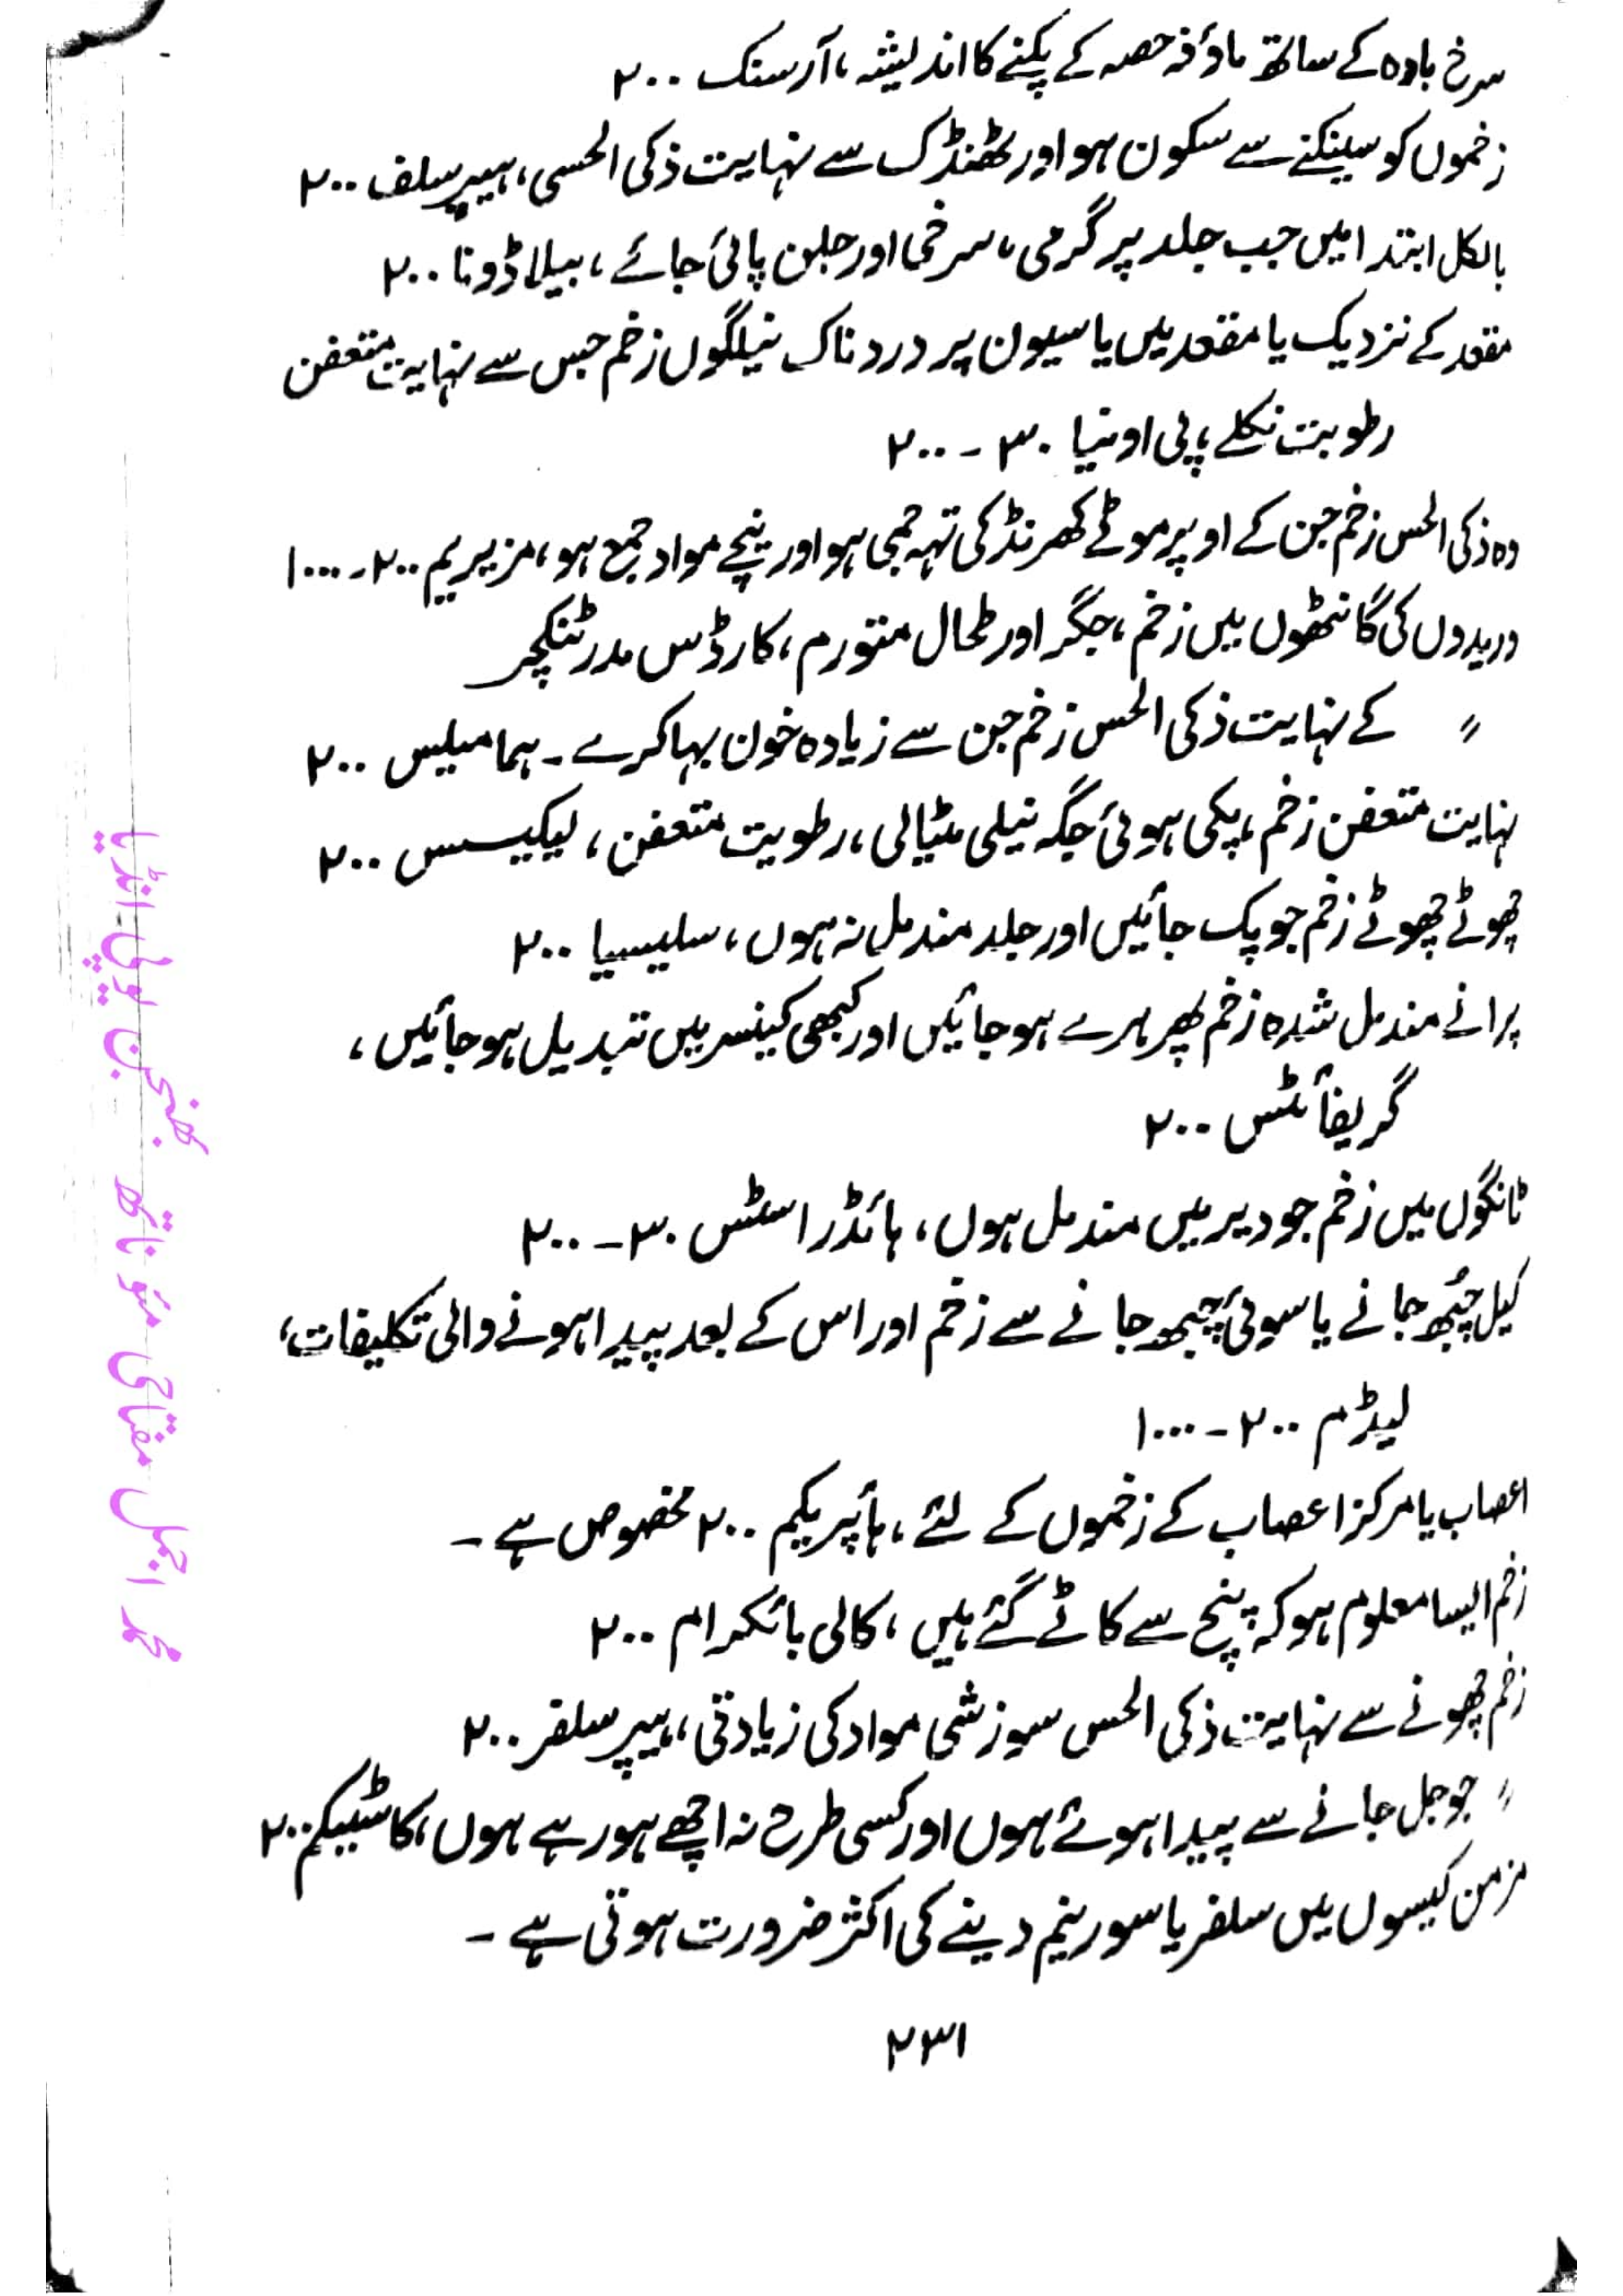 سرخ بادہ کے ساتھ ماؤفہ حصہ کے پکنے کا اندیشہ، آرسنک ۲۰۰
زخموں کو سینکنے سے سکون ہو اور ٹھنڈک سے نہایت ذکی الحسی، ہیپر سلف ۲۰۰
بالکل ابتدا میں جب جلد پر گرمی، سرخی اور جلن پائی جائے، بیلاڈونا ۲۰۰
مقعد کے نزدیک یا مقعد میں یا سیون پر دردناک نیلگوں زخم جس سے نہایت متعفن
رطوبت نکلے، پی اونیا ۳۰ - ۲۰۰
وہ ذکی الحس زخم جن کے اوپر موٹے کھرنڈ کی تہہ جمی ہو اور نیچے مواد جمع ہو، مزیریم ۲۰۰ - ۱۰۰۰
وریدوں کی گانٹھوں میں زخم، جگر اور طحال متورم، کارڈس مدر ٹنکچر
〃 کے نہایت ذکی الحس زخم جن سے زیادہ خون بہا کرے ۔ ہمامیلیس ۲۰۰
نہایت متعفن زخم، پکی ہوئی جگہ نیلی مٹیالی، رطوبت متعفن، لیکیسس ۲۰۰
چھوٹے چھوٹے زخم جو پک جائیں اور جلد مندمل نہ ہوں، سلیسیا ۲۰۰
پرانے مندمل شدہ زخم پھر ہرے ہو جائیں اور کبھی کینسر میں تبدیل ہو جائیں،
گریفائٹس ۲۰۰
ٹانگوں میں زخم جو دیر میں مندمل ہوں، ہائڈراسٹس ۳۰ - ۲۰۰
کیل چُبھ جانے یا سوئی چبھ جانے سے زخم اور اس کے بعد پیدا ہونے والی تکلیفات،
لیڈم ۲۰۰ - ۱۰۰۰
اعصاب یا مرکز اعصاب کے زخموں کے لئے، ہائپریکم ۲۰۰ مخصوص ہے ۔
زخم ایسا معلوم ہو کہ پنچ سے کاٹے گئے ہیں، کالی بائکرام ۲۰۰
زخم چھونے سے نہایت ذکی الحس سوزشی مواد کی زیادتی، ہیپر سلفر ۲۰۰
〃 جو جل جانے سے پیدا ہوئے ہوں اور کسی طرح نہ اچھے ہو رہے ہوں، کاسٹیکم ۲۰۰
مزمن کیسوں میں سلفر یا سورینم دینے کی اکثر ضرورت ہوتی ہے ۔
۲۳۱
محمد اجمل مفتاحی مئو ناتھ بھنجن یوپی انڈیا